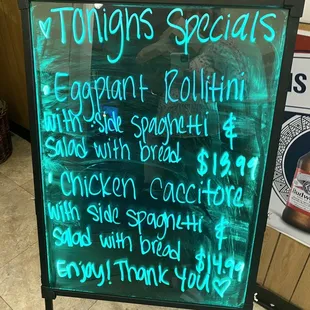 ♥ Tonighs Specials
• Eggplant Rollitini
with side spaghetti &
salad with bread
$13.99
• Chicken Caccitore
with side spaghetti &
salad with bread
$14.99
Enjoy! Thank You ♡